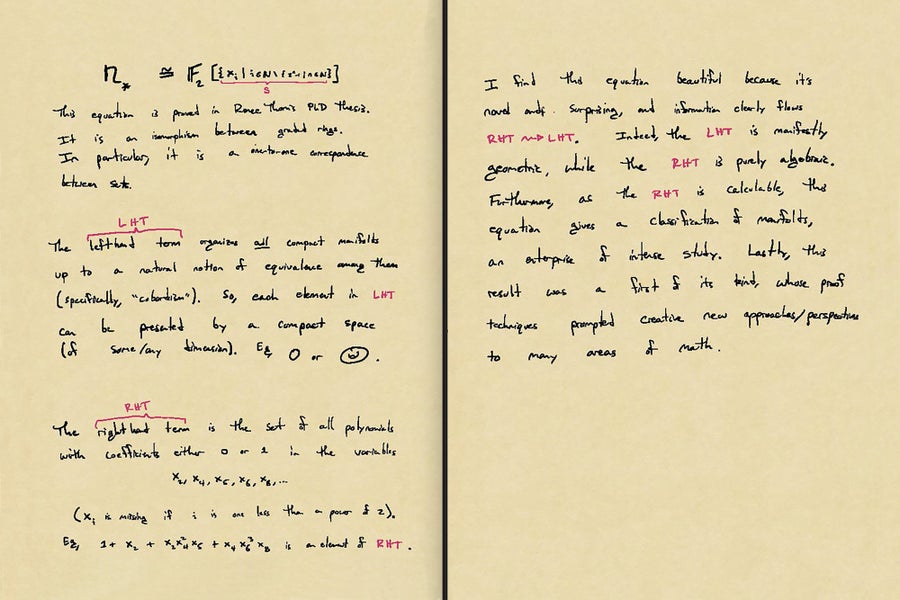 𝔫_* ≅ 𝔽₂[{xᵢ | i∈ℕ\{2ⁿ-1 | n∈ℕ}}]
S
This equation is proved in Rene Thom's PhD thesis.
It is an isomorphism between graded rings.
In particular, it is a one-to-one correspondence
between sets.
LHT
The lefthand term organizes all compact manifolds
up to a natural notion of equivalence among them
(specifically, "cobordism"). So, each element in LHT
can be presented by a compact space
(of some/any dimension). Eg, O or .
RHT
The righthand term is the set of all polynomials
with coefficients either 0 or 1 in the variables
x₂, x₄, x₅, x₆, x₈, ...
(xᵢ is missing if i is one less than a power of 2).
Eg, 1 + x₂ + x₂x₄²x₅ + x₄x₆³x₈ is an element of RHT.
I find this equation beautiful because it's
novel and surprising, and information clearly flows
RHT ⇝ LHT. Indeed, the LHT is manifestly
geometric, while the RHT is purely algebraic.
Furthermore, as the RHT is calculable, this
equation gives a classification of manifolds,
an enterprise of intense study. Lastly, this
result was a first of its kind, whose proof
techniques prompted creative new approaches/perspectives
to many areas of math.